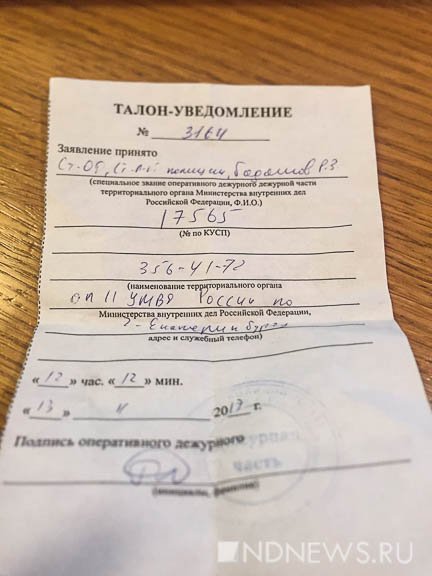 ТАЛОН-УВЕДОМЛЕНИЕ
№ 3164
Заявление принято
полиции,
(специальное звание оперативного дежурного дежурной части
территориального органа Министерства внутренних дел
Российской Федерации, Ф.И.О.)
17565
(№ по КУСП)
356-41-72
(наименование территориального органа
оп 11 УМВД России по
Министерства внутренних дел Российской Федерации,
г. Екатеринбургу
адрес и служебный телефон)
«12» час. «12» мин.
«13» 2017 г.
Подпись оперативного дежурного
дежурная
часть
(инициалы, фамилия)
NDNEWS.RU